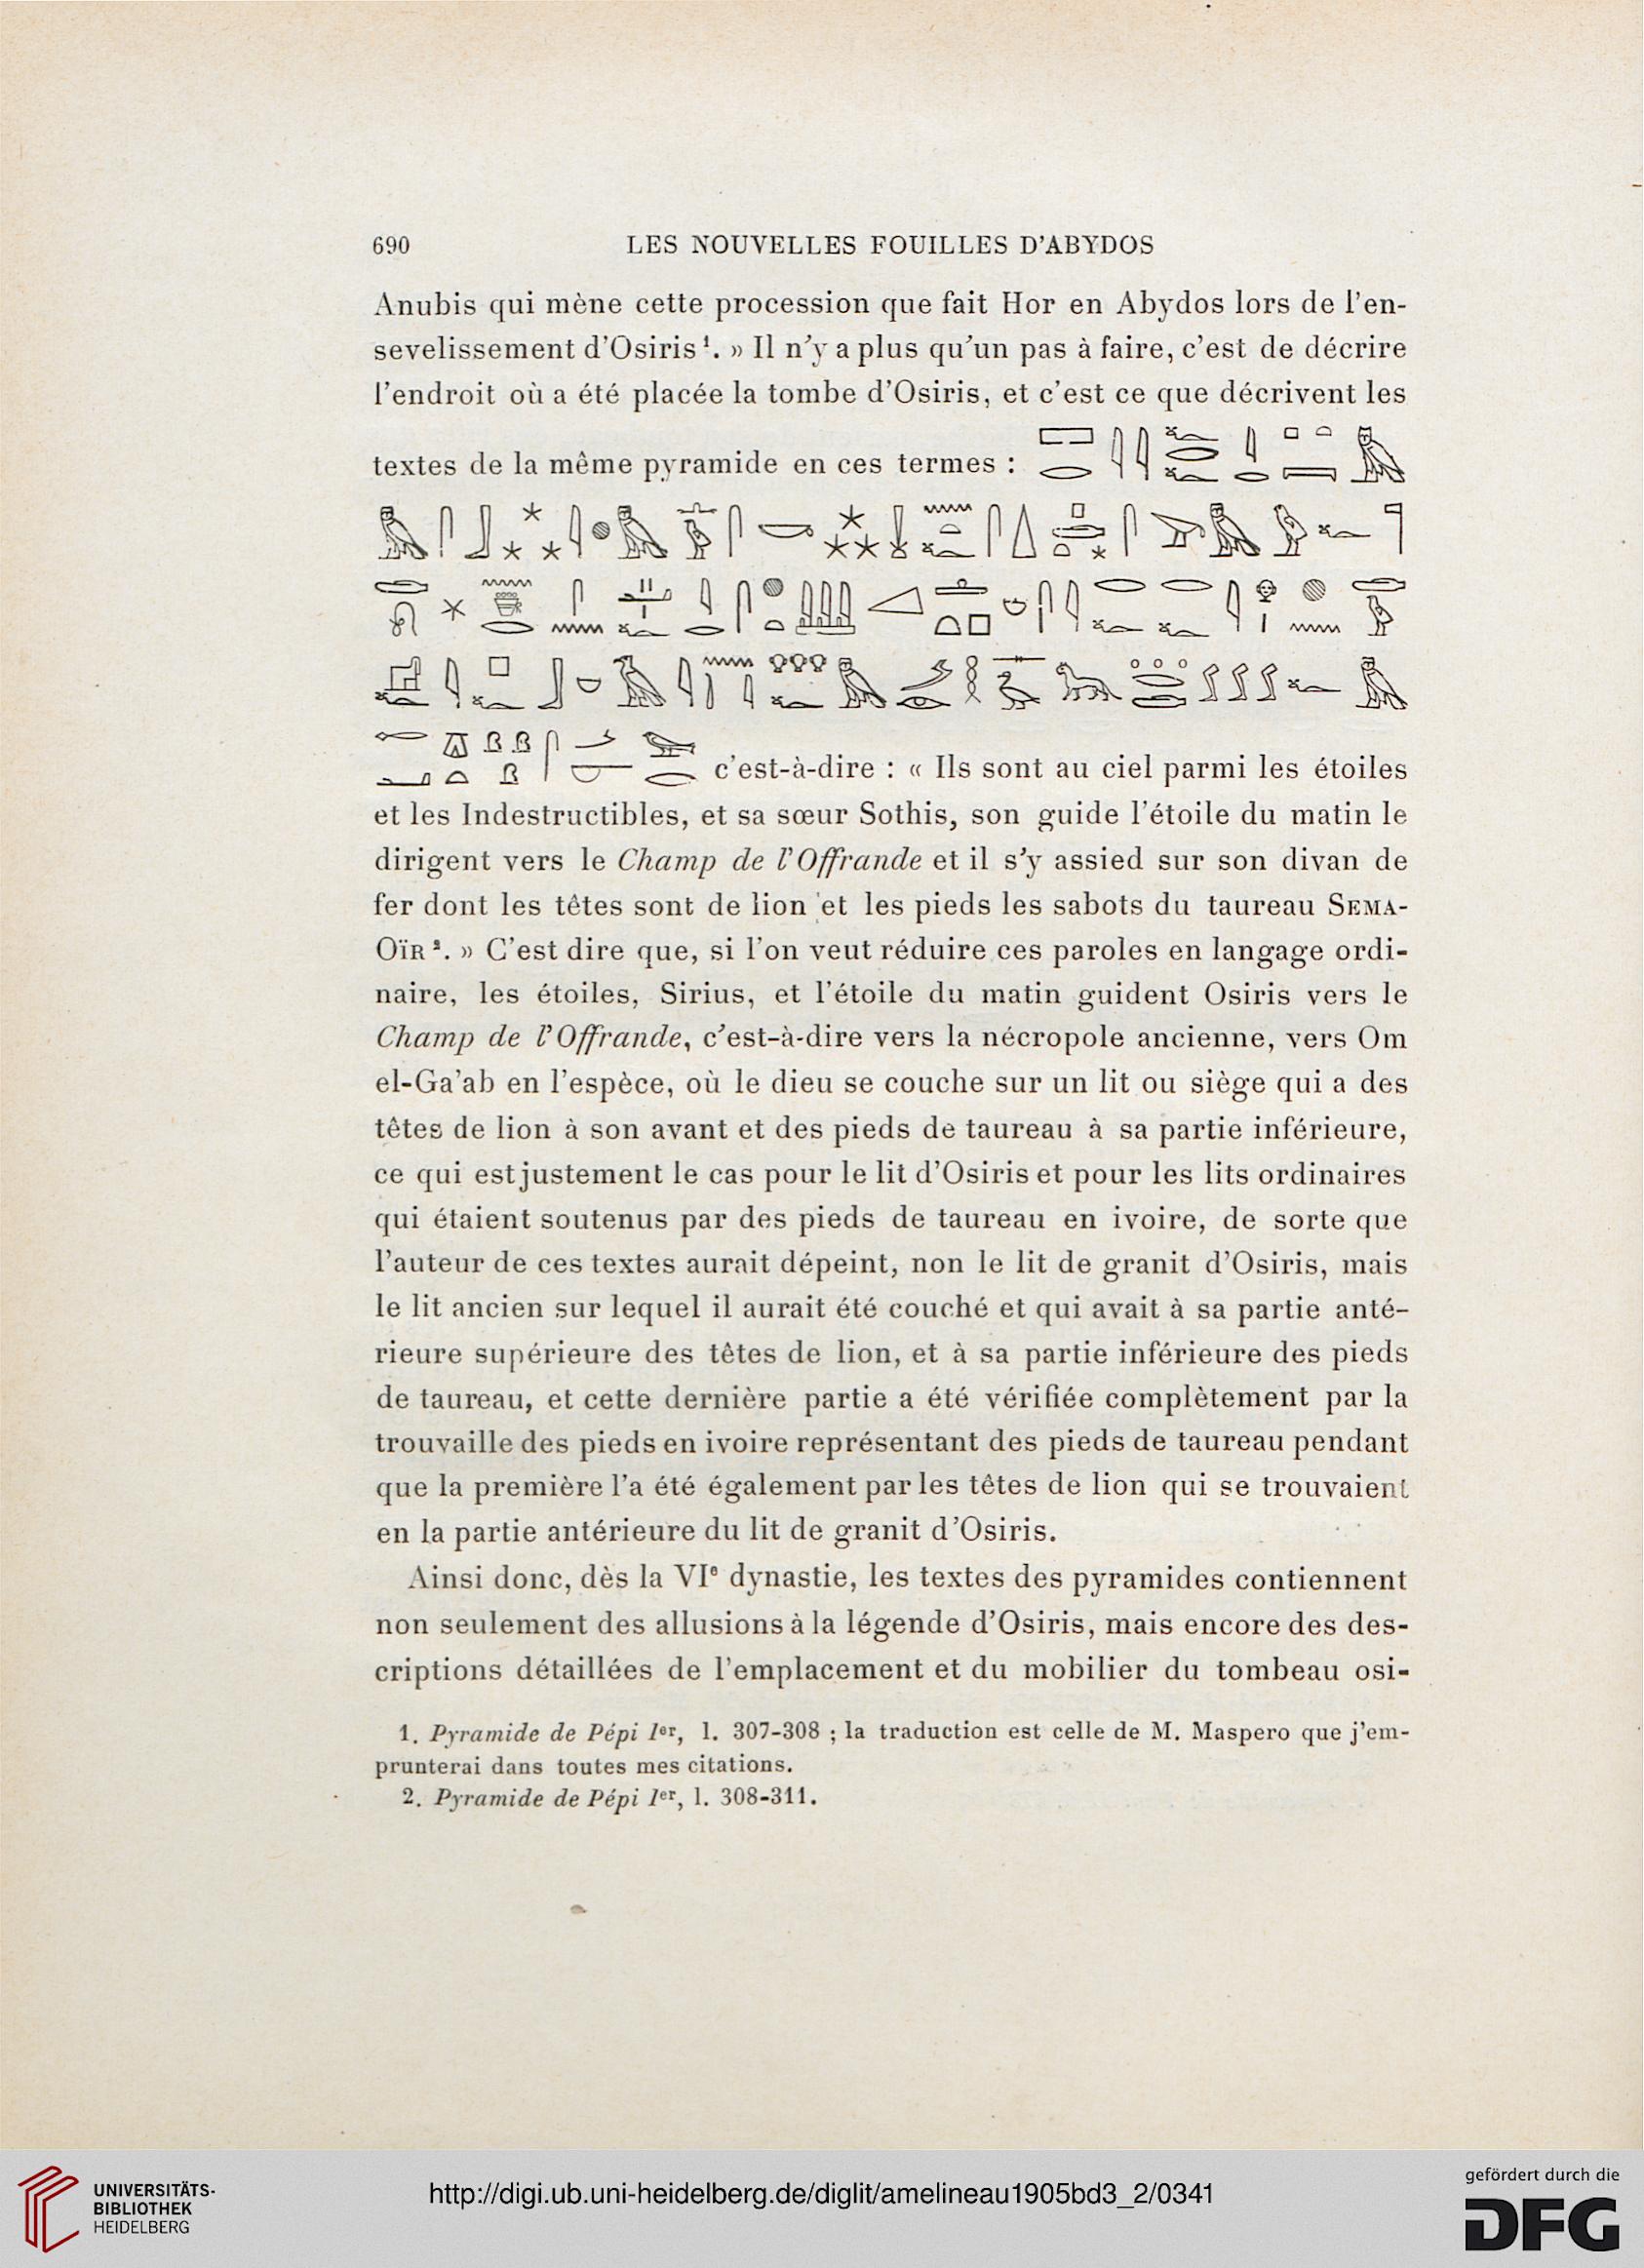 690 LES NOUVELLES FOUILLES D'ABYDOS
Anubis qui mène cette procession que fait Hor en Abydos lors de l'en-
sevelissement d'Osiris¹. » Il n'y a plus qu'un pas à faire, c'est de décrire
l'endroit où a été placée la tombe d'Osiris, et c'est ce que décrivent les
textes de la même pyramide en ces termes :
c'est-à-dire : « Ils sont au ciel parmi les étoiles
et les Indestructibles, et sa sœur Sothis, son guide l'étoile du matin le
dirigent vers le Champ de l'Offrande et il s'y assied sur son divan de
fer dont les têtes sont de lion et les pieds les sabots du taureau SEMA-
OÏR². » C'est dire que, si l'on veut réduire ces paroles en langage ordi-
naire, les étoiles, Sirius, et l'étoile du matin guident Osiris vers le
Champ de l'Offrande, c'est-à-dire vers la nécropole ancienne, vers Om
el-Ga'ab en l'espèce, où le dieu se couche sur un lit ou siège qui a des
têtes de lion à son avant et des pieds de taureau à sa partie inférieure,
ce qui est justement le cas pour le lit d'Osiris et pour les lits ordinaires
qui étaient soutenus par des pieds de taureau en ivoire, de sorte que
l'auteur de ces textes aurait dépeint, non le lit de granit d'Osiris, mais
le lit ancien sur lequel il aurait été couché et qui avait à sa partie anté-
rieure supérieure des têtes de lion, et à sa partie inférieure des pieds
de taureau, et cette dernière partie a été vérifiée complètement par la
trouvaille des pieds en ivoire représentant des pieds de taureau pendant
que la première l'a été également par les têtes de lion qui se trouvaient
en la partie antérieure du lit de granit d'Osiris.
Ainsi donc, dès la VIe dynastie, les textes des pyramides contiennent
non seulement des allusions à la légende d'Osiris, mais encore des des-
criptions détaillées de l'emplacement et du mobilier du tombeau osi-
1. Pyramide de Pépi Ier, l. 307-308 ; la traduction est celle de M. Maspero que j'em-
prunterai dans toutes mes citations.
2. Pyramide de Pépi Ier, l. 308-311.
UNIVERSITÄTS-
BIBLIOTHEK
HEIDELBERG
http://digi.ub.uni-heidelberg.de/diglit/amelineau1905bd3_2/0341
gefördert durch die
DFG